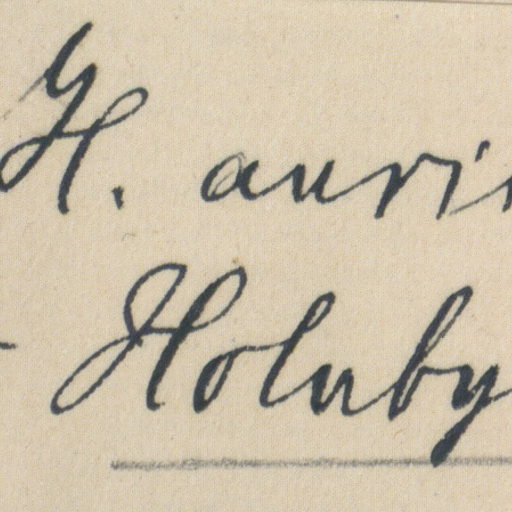 H. auri
Holuby